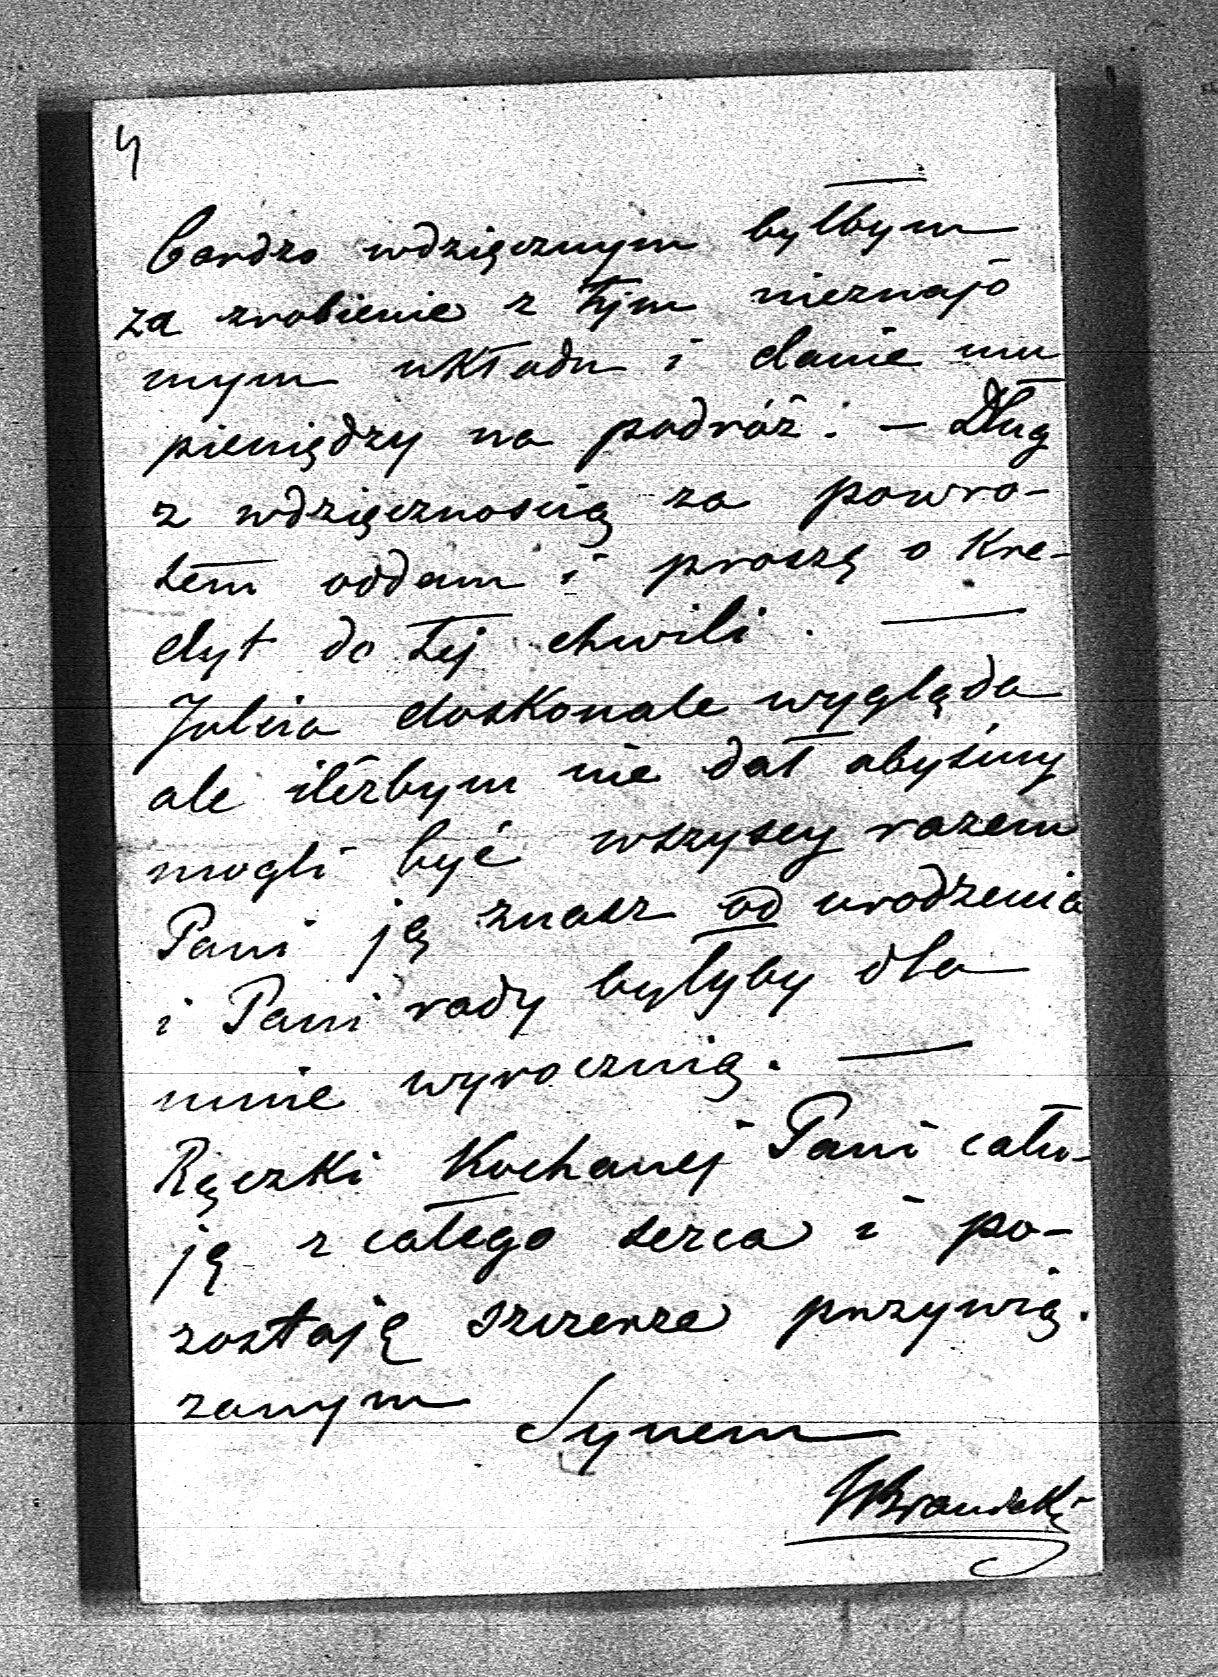 4
Bardzo wdzięcznym byłbym
za zrobienie z tym nieznajo
mym układu i danie mu
pieniędzy na podróż. – Dług
z wdzięcznością za powro-
tem oddam i proszę o kre-
dyt do tej chwili. —
Julcia doskonale wygląda
ale ileżbym nie dał abyśmy
mogli być wszyscy razem
Pani ją znasz od urodzenia
i Pani rady byłyby dla
mnie wyrocznią. —
Rączki Kochanej Pani cału-
ję z całego serca i po-
zostaję szczerze przywią-
zanym
Synem